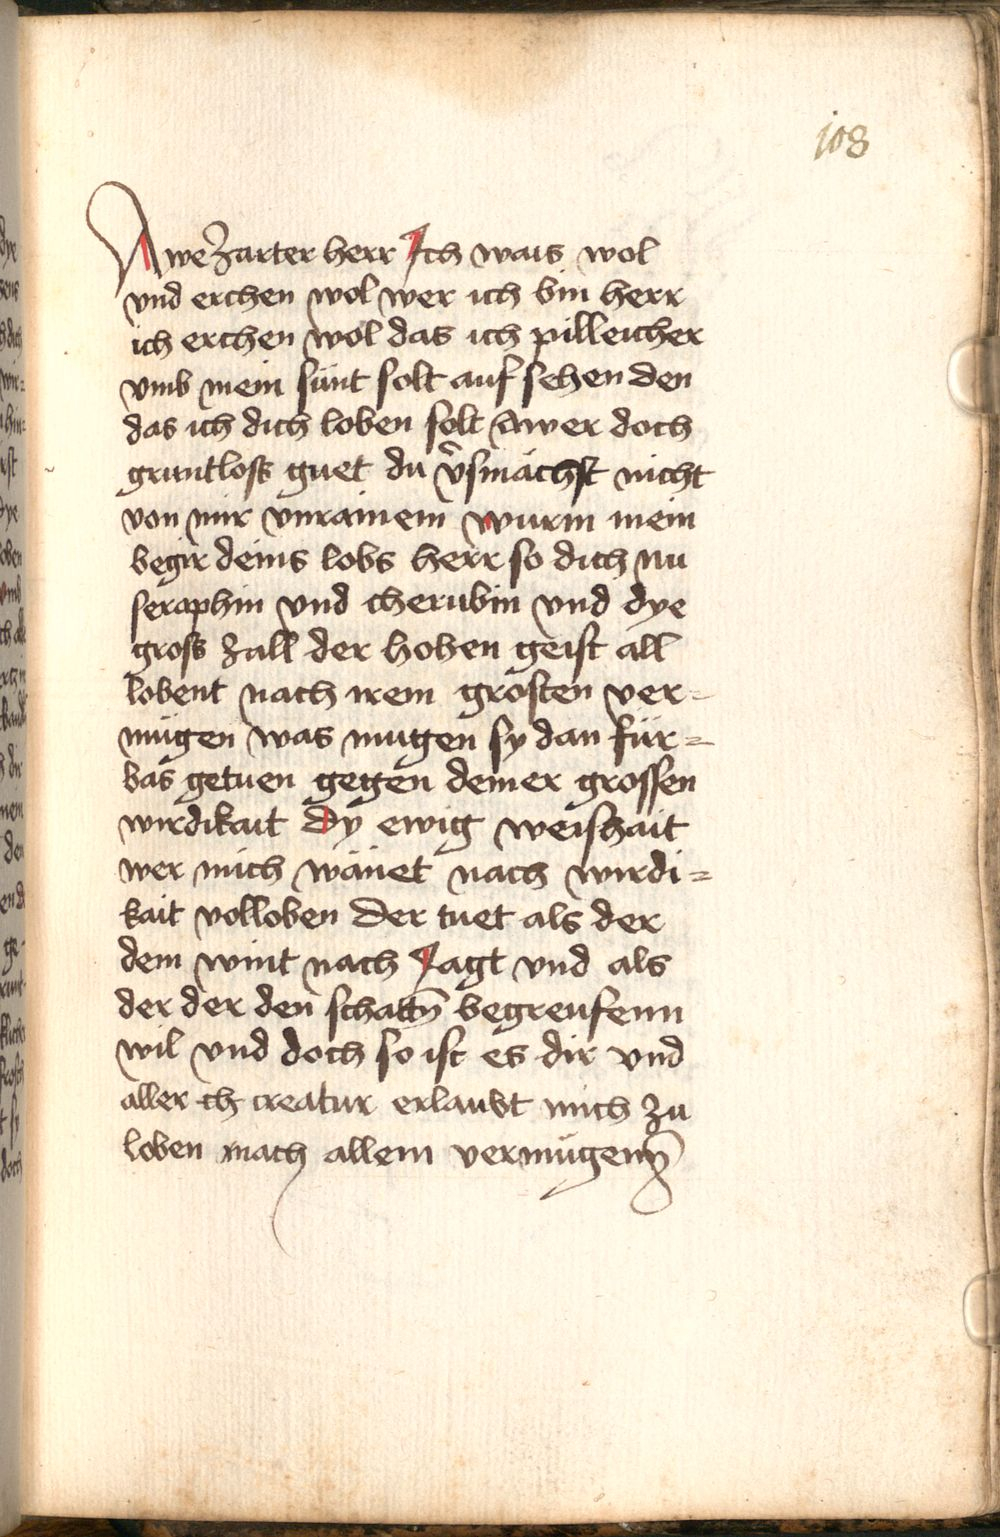 108
Awe zarter herr Ich wais wol
vnd erchen wol wer ich bin herr
ich erchen wol das ich pilleicher
vmb mein sünt solt auf sehenden
das ich dich loben solt Awer doch
gruntloss guet du v̉smächst nicht
von mir vnrainem wurm mein
begir deins lobs herr so dich nu
seraphin vnd cherubin vnd dye
gross zall der hohen geist all
lobent nach irem grosten ver=
mügen was mugen sy dan für=
bas getuen gegen deiner grossen
wirdikait Dy ewig weishait
wer mich wänet nach wirdi=
kait volloben Der tuet als der
dem wint nach Jagt vnd als
der der den schattn̄ begreufenn
wil vnd doch so ist es dir vnd
aller ch creatur erlaubt mich zu
loben nach allem vermügenn̄